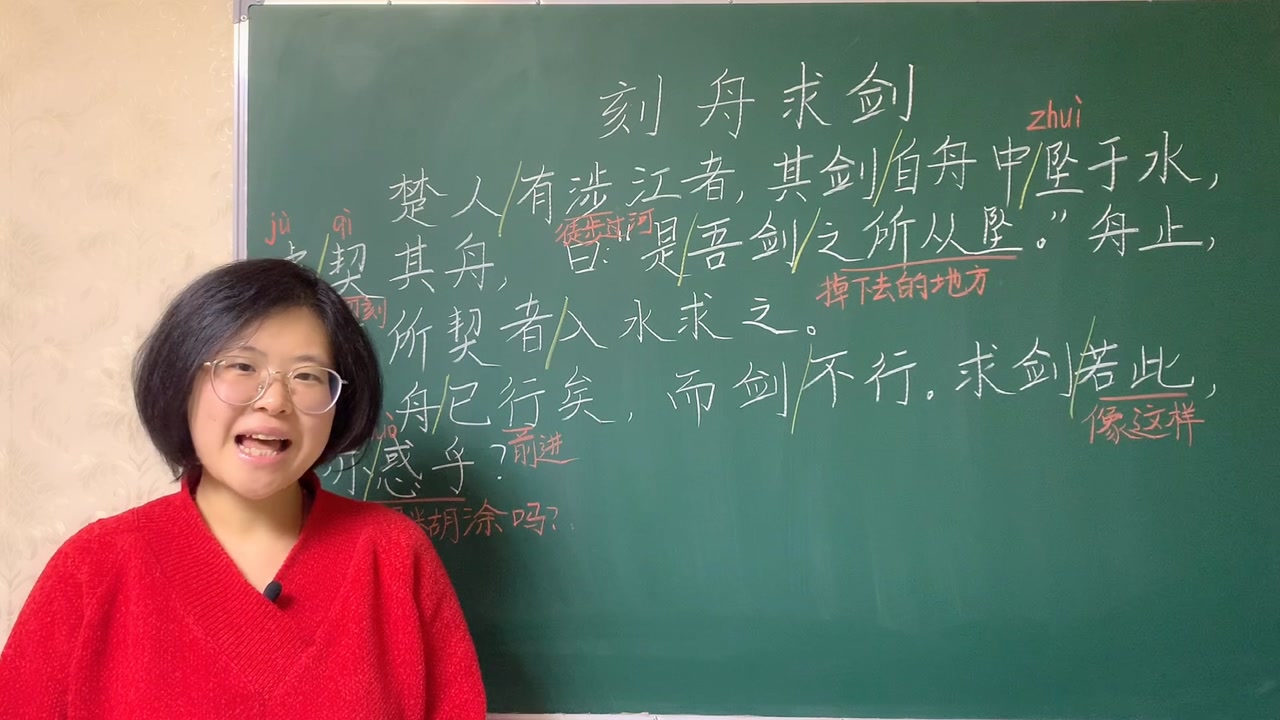 刻舟求剑
zhuì
楚人/有涉江者,其剑/自舟中/坠于水,
徒步过河
jù qì
/契其舟,曰:“是/吾剑/之所从坠。”舟止,
刻
掉下去的地方
所契者/入水求之。
舟/已行矣,而剑/不行.求剑/若此,
前进
像这样
/惑乎?
糊涂吗?